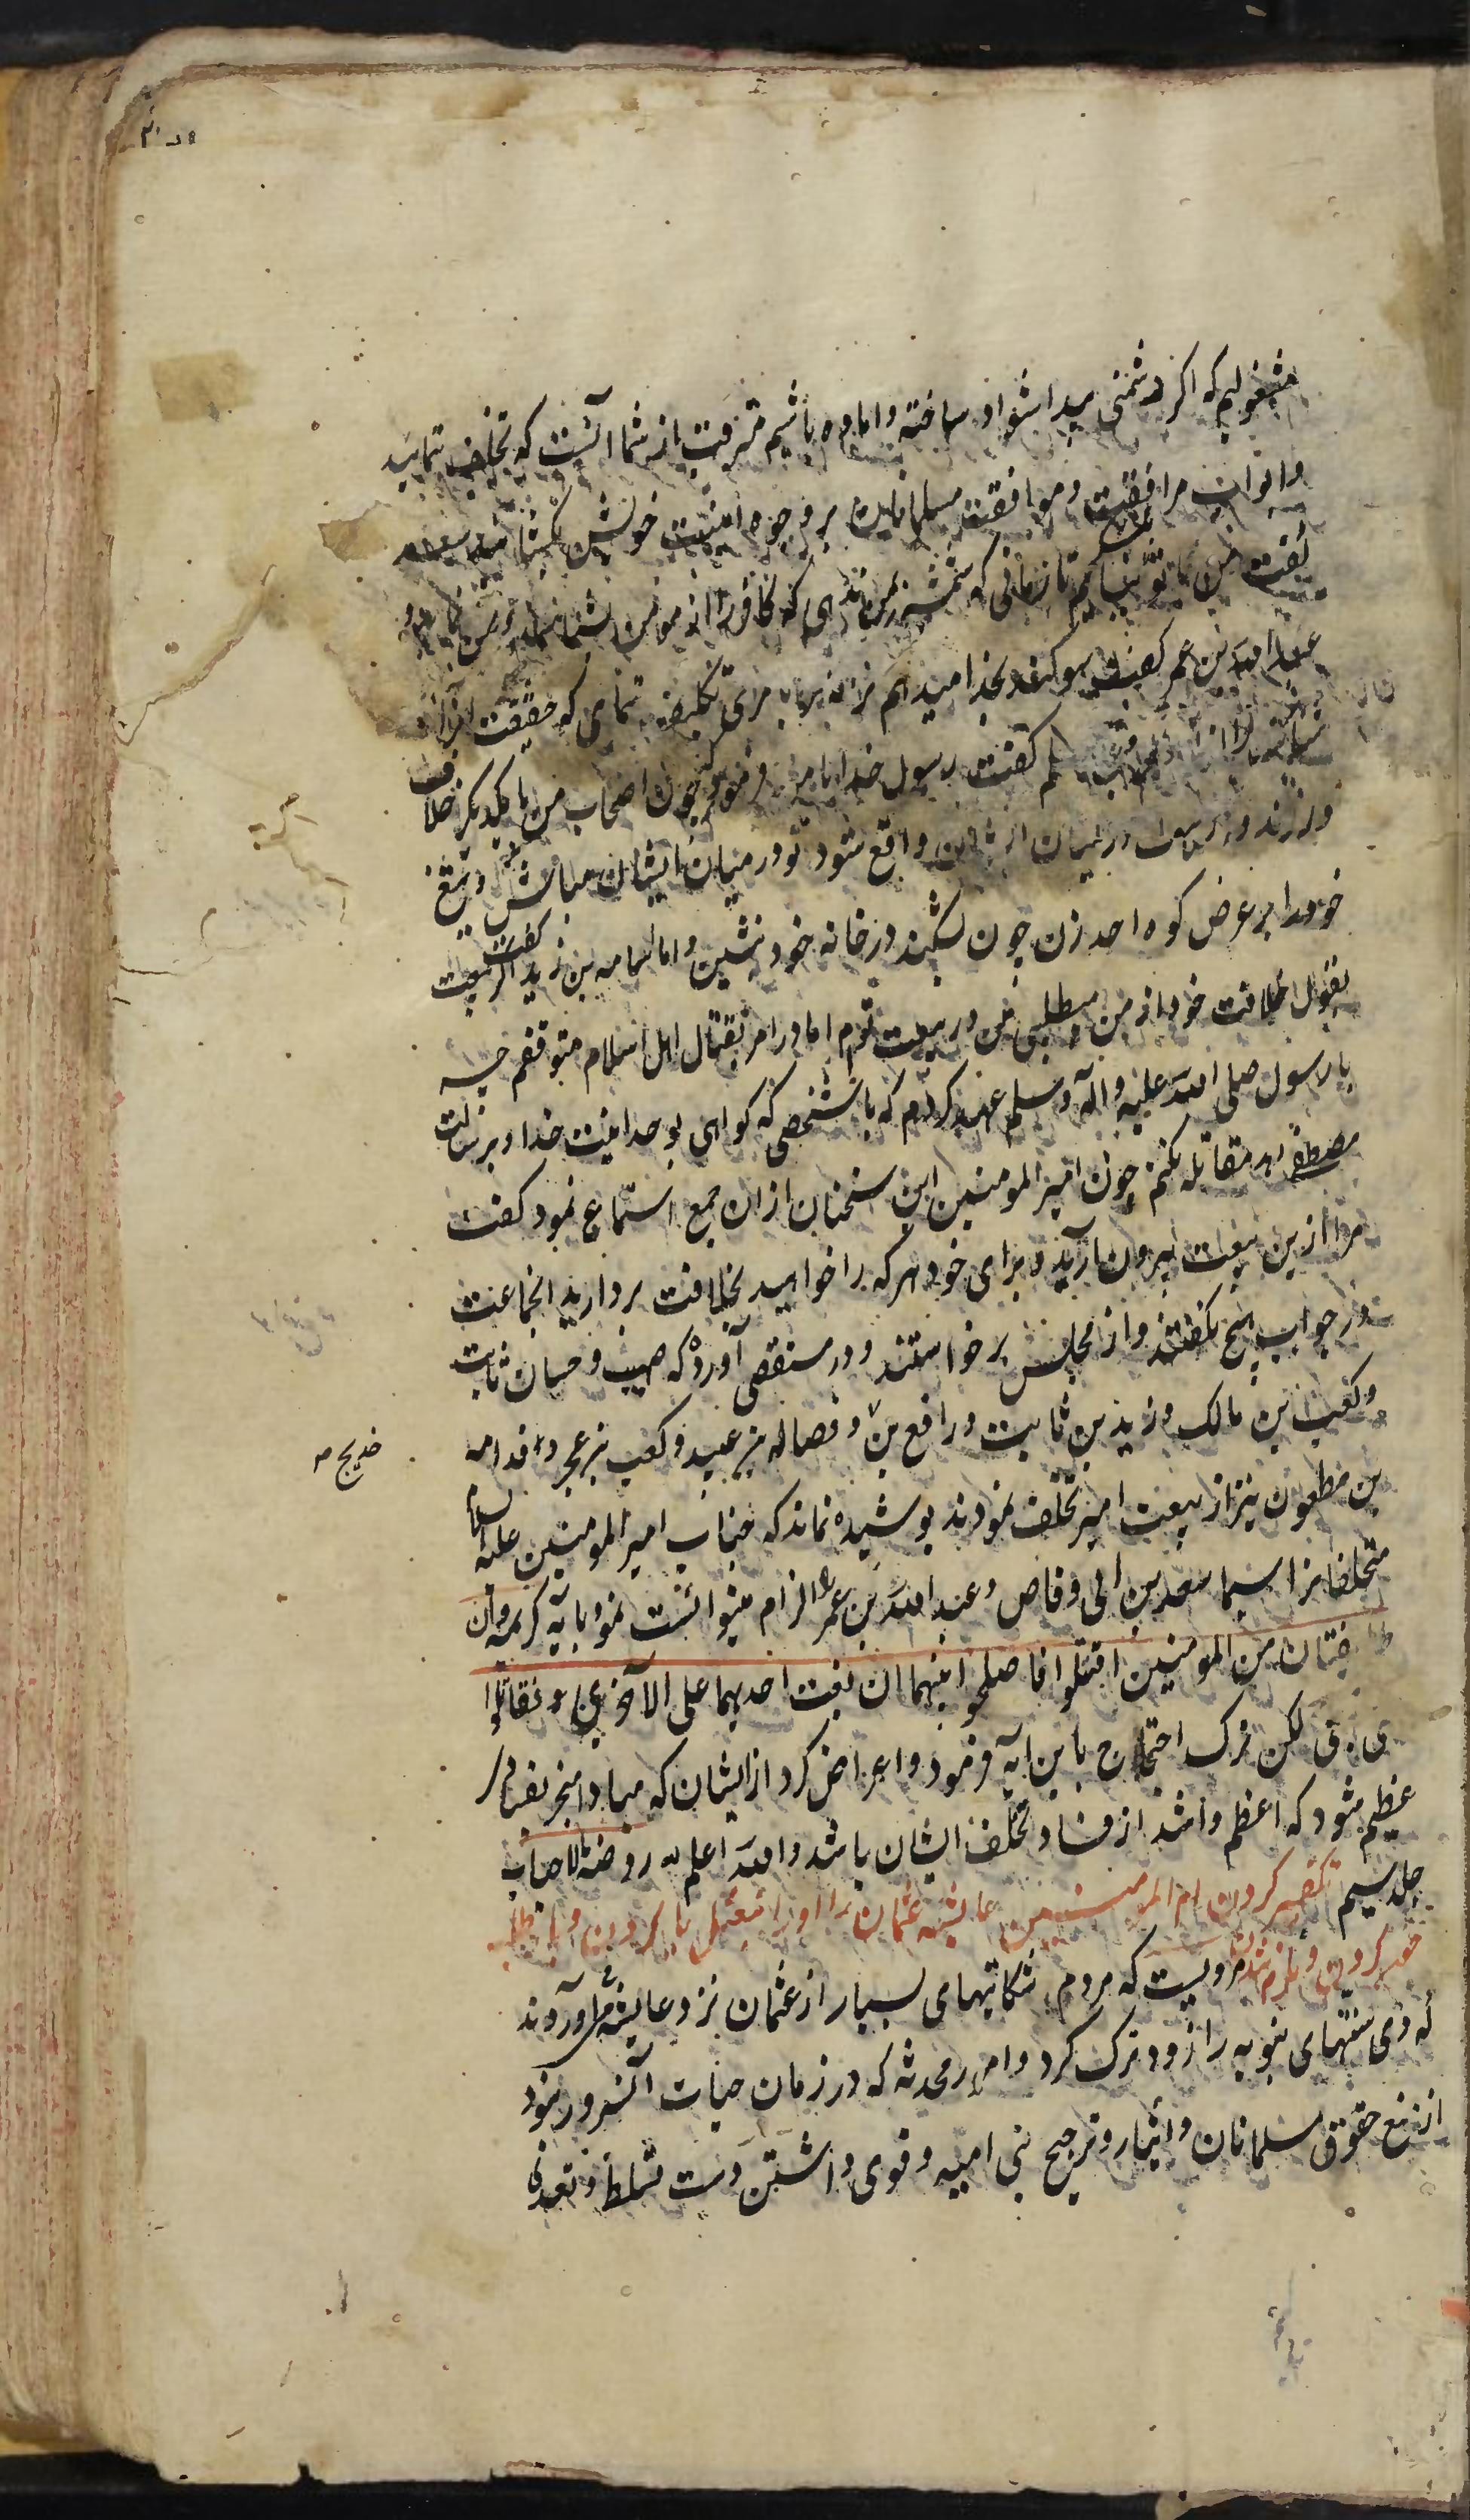 مشغولیم که اکر دشمنی پیدا شود ساخته و اماده باشیم مترقب از شما آنست که تخلف ننمائید
وابواب مرافقت وموافقت مسلمانان بر وجوه امنیت خویش بکشائید سعد
گفت من با تو بیایم تا زمانی که شمشیر بمن دهی که کافر را از مومن بشناسد
عبد الله بن عمر کفت سوکند بخدا میدهم ترا که مرا تکلیف ننمای که حقیقت انرا
کفت رسول خدا مرا فرمود که چون اصحاب من با یکدیکر خلاف
ورزند و در میان ایشان واقع شود تو در میان ایشان مباش و تیغ
خود را بر عرض کوه احد زن چون بشکند در خانه خود بنشین واما اسامه بن زید کفت اکر بیعت
بقبول خلافت خود از من میطلبی من در بیعت توام اما در امر بقتال اهل اسلام متوقفم چه
با رسول صلی الله علیه واله وسلم عهد کردم که با شخصی که کواهی بوحدانیت خدا و برسالت
مصطفی دهد مقاتله نکنم چون امیر المومنین این سخنان از ان جمع استماع نمود کفت
مرا ازین بیعت بیرون آرید و برای خود هر که را خواهید بخلافت بردارید انجماعت
در جواب هیچ نکفتند و از مجلس برخواستند و در مستقصی آورده که صهیب و حسان ثابت
وکعب بن مالک و زید بن ثابت و رافع بن و فضاله بن عبید و کعب بن عجره و قدامه
خدیج صه
بن مظعون نیز از بیعت امیر تخلف نمودند پوشیده نماند که جناب امیر المومنین علیه السلام
متخلفانرا سیما سعد بن ابی وقاص وعبد الله بن عمر را الزام میتوانست نمود بآیه کریمه وان
طایفتان من المومنین اقتتلوا فاصلحوا بینهما ان بغت احدیهما علی الآخری فقاتلوا
لکن ترک احتجاج باین ایه فرمود و اعراض کرد از ایشان که مبادا منجر بفسادی
عظیم شود که اعظم و اشد از فساد تخلف ایشان باشد والله اعلم روضة الاحباب
جلد سیم تقصیر کردن ام المومنین عایشه عثمان را و اورا بنعثل یاد کردن و باز طلب
خون کردن و ملزم شدن مرویست که مردم شکایتهای بسیار از عثمان نزد عایشه می آوردند
که وی سنتهای نبویه را زود ترک کرد و امور محدثه که در زمان حیات آنسرور نبود
از منع حقوق مسلمانان و ایثار و ترجیح بنی امیه و قوی داشتن دست تسلط و تعدی